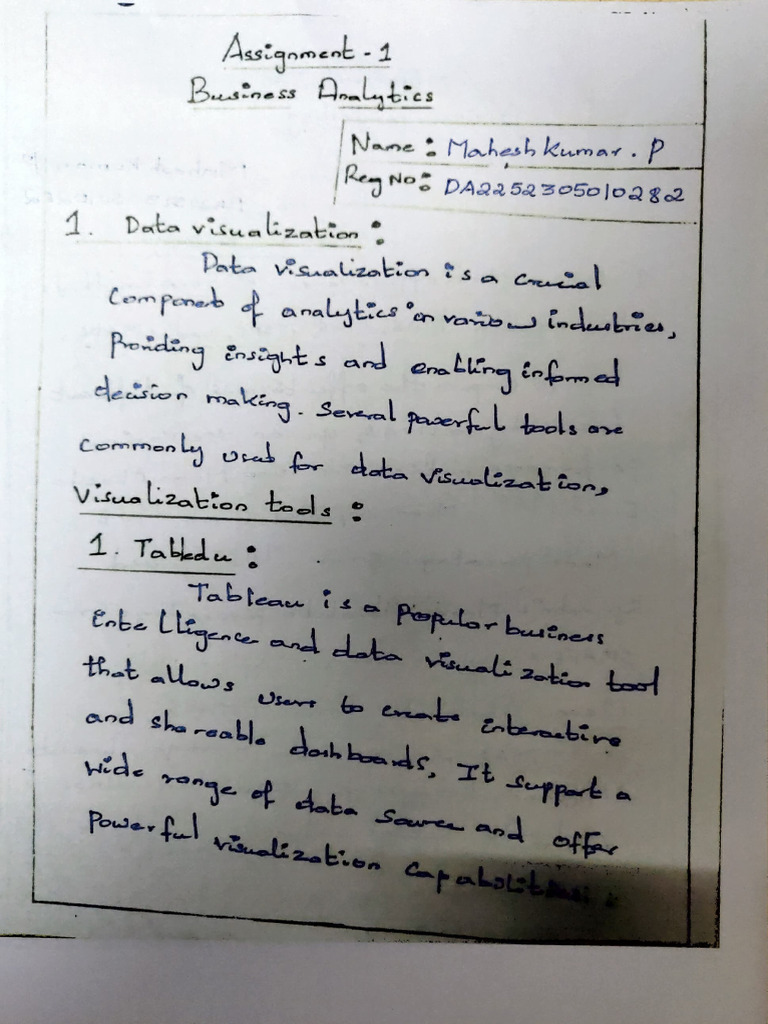 Assignment - 1
Business Analytics
Name : Mahesh kumar . P
Reg No : DA2252305010282
1. Data visualization :
Data visualization is a crucial
Component of analytics in various industries,
Providing insights and enabling informed
decision making. Several powerful tools are
commonly used for data visualization,
Visualization tools :
1. Tabledu :
Tableau is a popular business
intelligence and data visualization tool
that allows users to create interactive
and shareable dashboards, It support a
wide range of data source and offer
Powerful visualization